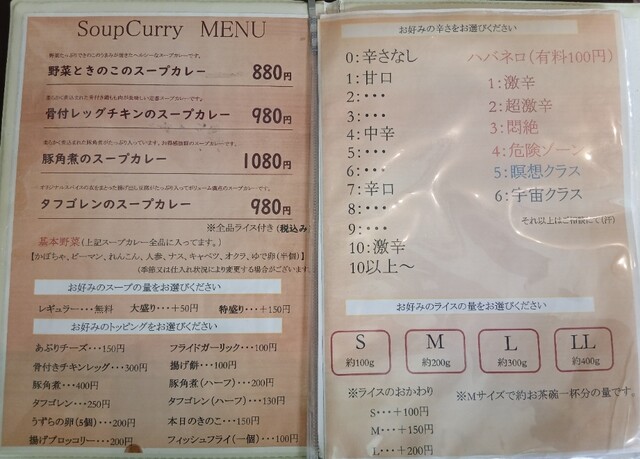 SoupCurry MENU
野菜ときのこのスープカレー 880円
骨付レッグチキンのスープカレー 980円
豚角煮のスープカレー 1080円
タフゴレンのスープカレー 980円
※全品ライス付き(税込み)
基本野菜(上記スープカレー全品に入ってます。)
【かぼちゃ、ピーマン、れんこん、人参、ナス、キャベツ、オクラ、ゆで卵(半個)】
(季節又は仕入れ状況により変更する場合がございます
お好みのスープの量をお選びください
レギュラー・・・無料 大盛り・・・+50円 特盛り・・・+150円
お好みのトッピングをお選びください
あぶりチーズ・・・150円 フライドガーリック・・・100円
骨付きチキンレッグ・・・300円 揚げ餅・・・100円
豚角煮・・・400円 豚角煮(ハーフ)・・・200円
タフゴレン・・・250円 タフゴレン(ハーフ)・・・130円
うずらの卵(5個)・・・200円 本日のきのこ・・・150円
揚げブロッコリー・・・200円 フィッシュフライ(一個)・・・100円
お好みの辛さをお選びください
0:辛さなし
1:甘口
2:・・・
3:・・・
4:中辛
5:・・・
6:・・・
7:辛口
8:・・・
9:・・・
10:激辛
10以上~
ハバネロ(有料100円)
1:激辛
2:超激辛
3:悶絶
4:危険ゾーン
5:瞑想クラス
6:宇宙クラス
それ以上はご相談にて(汗)
お好みのライスの量をお選びください
S 約100g
M 約200g
L 約300g
LL 約400g
※ライスのおかわり
S・・・+100円
M・・・+150円
L・・・+200円
※Mサイズで約お茶碗一杯分の量です。